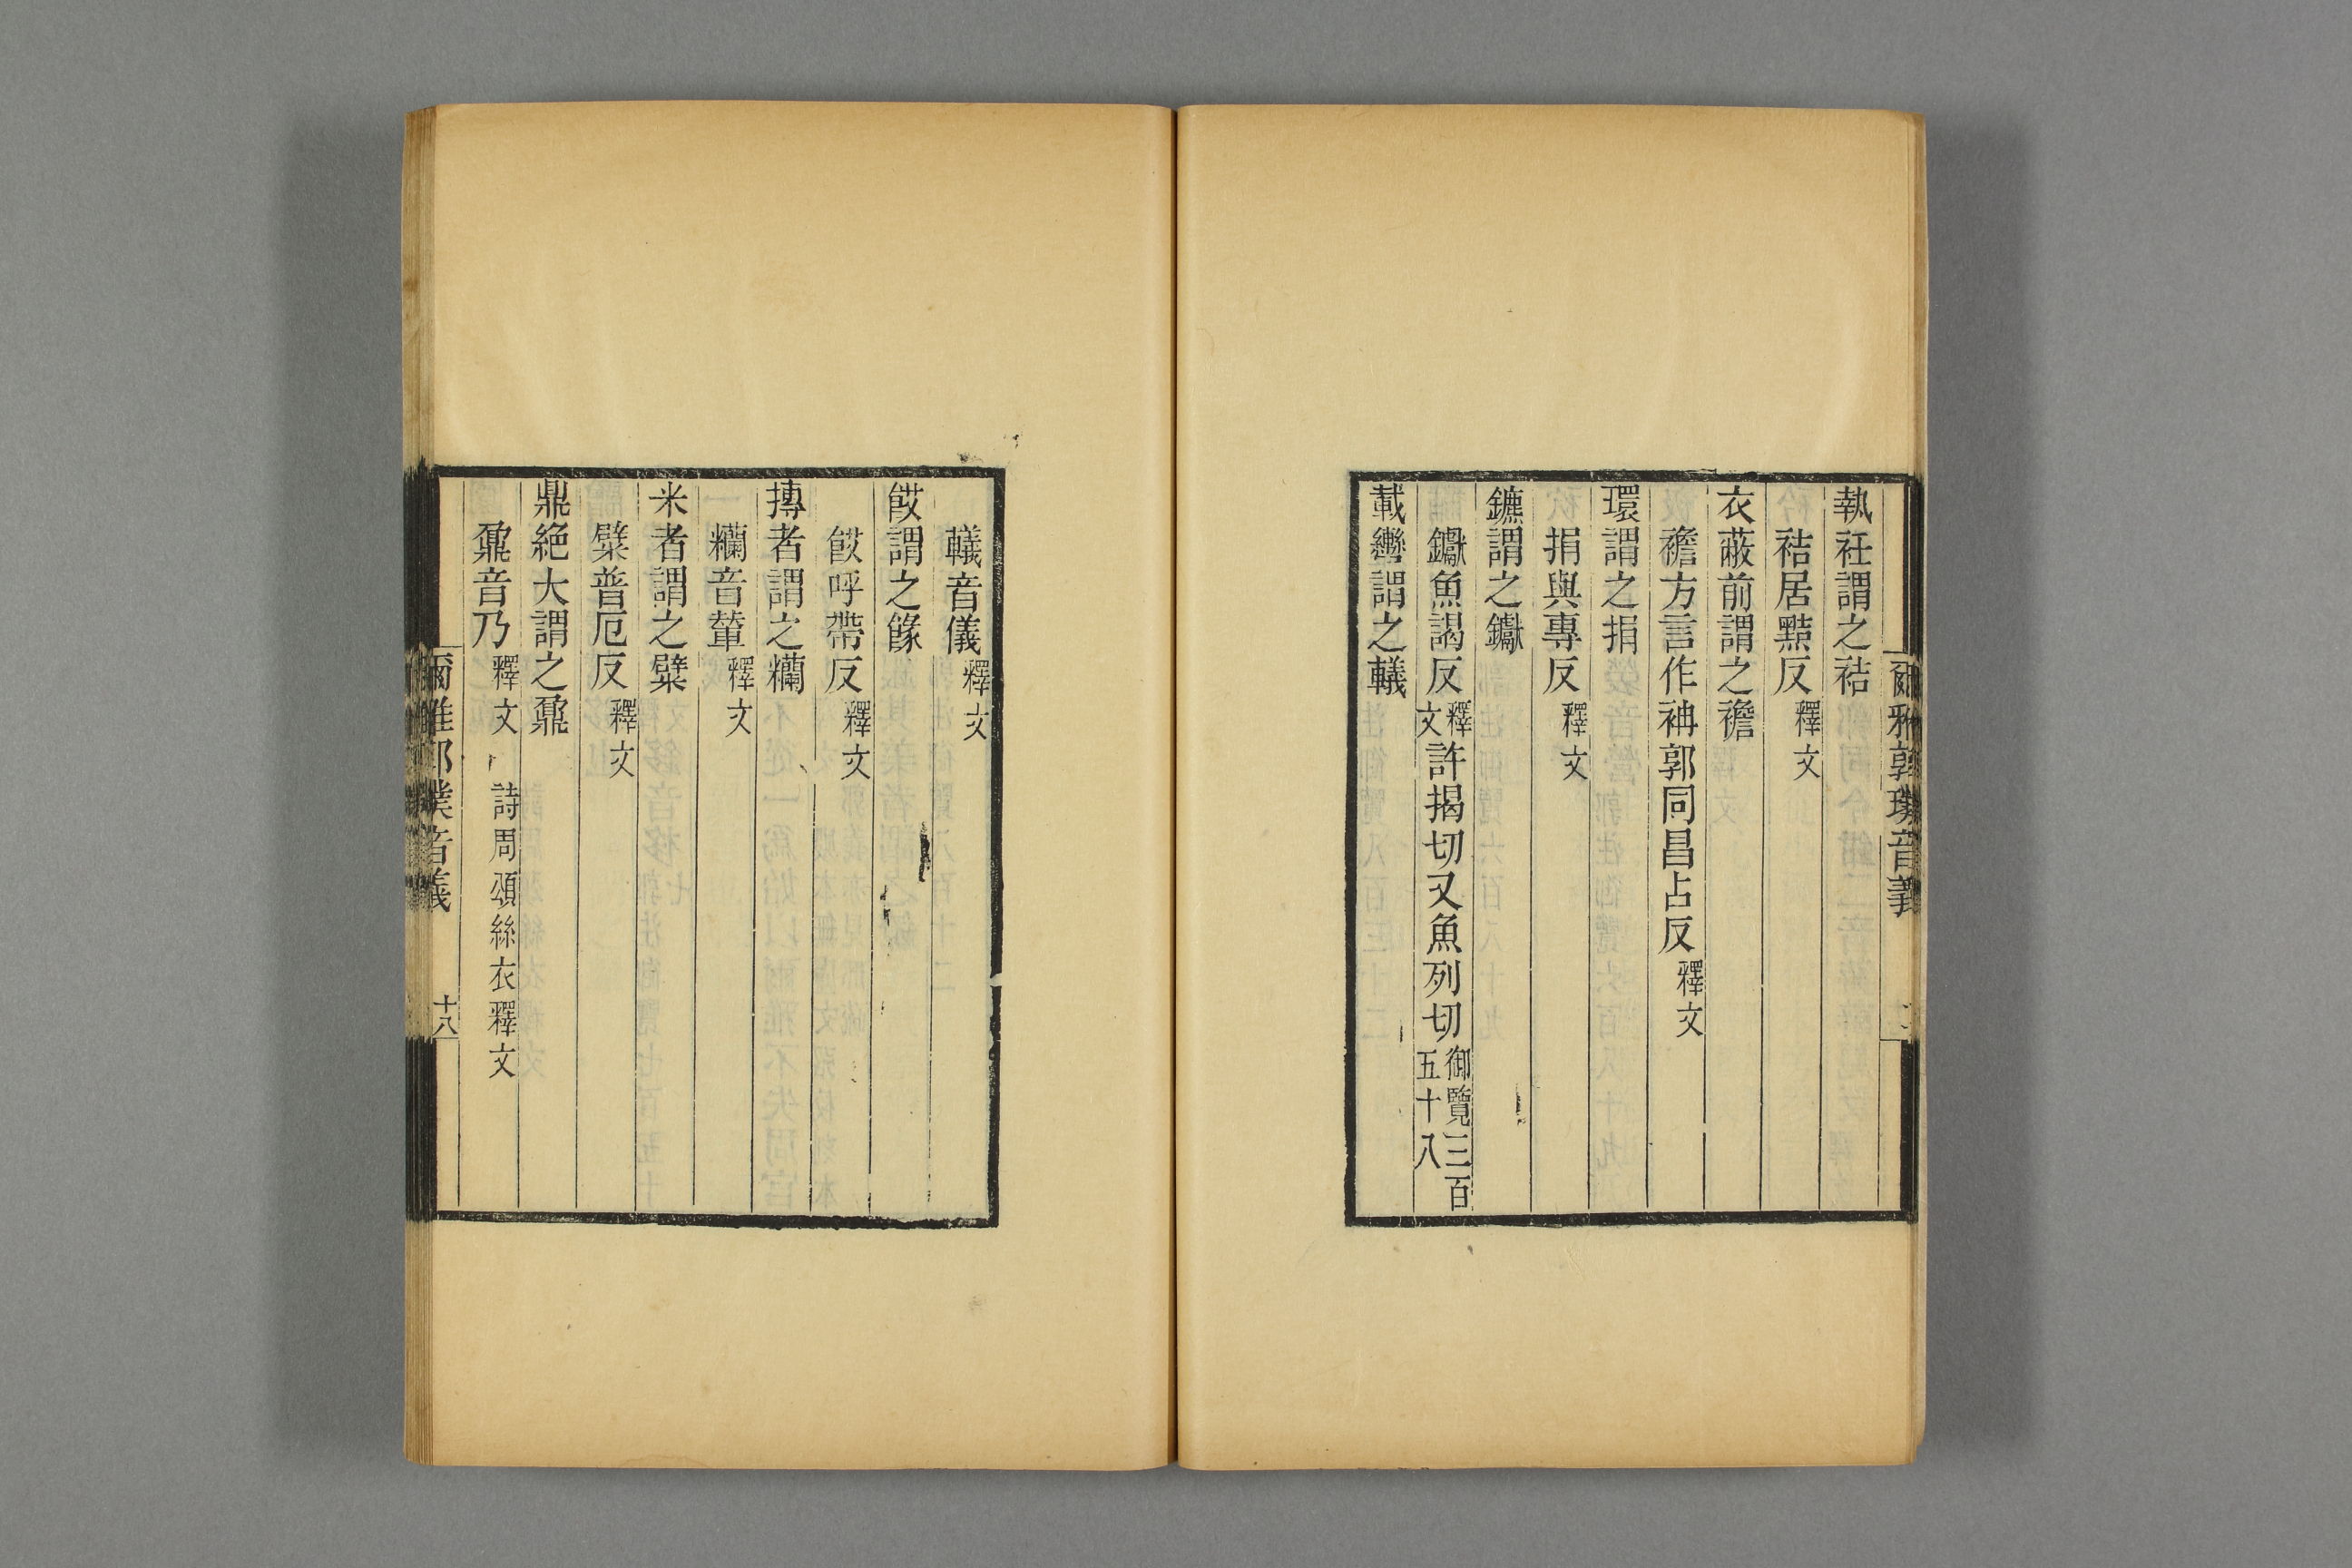 執衽謂之袺
袺居黠反釋文
衣蔽前謂之襜
襜方言作袡郭同昌占反釋文
環謂之捐
捐與專反釋文
鑣謂之钀
钀魚謁反釋文許揭切又魚列切御覽三百五十八
載轡謂之轙
轙音儀釋文
餀謂之餯
餀呼帶反釋文
摶者謂之糷
糷音輦釋文
米者謂之糪
糪普厄反釋文
鼎絕大謂之鼐
鼐音乃釋文 詩周頌絲衣釋文
爾雅郭璞音義 十八
爾雅郭璞音義